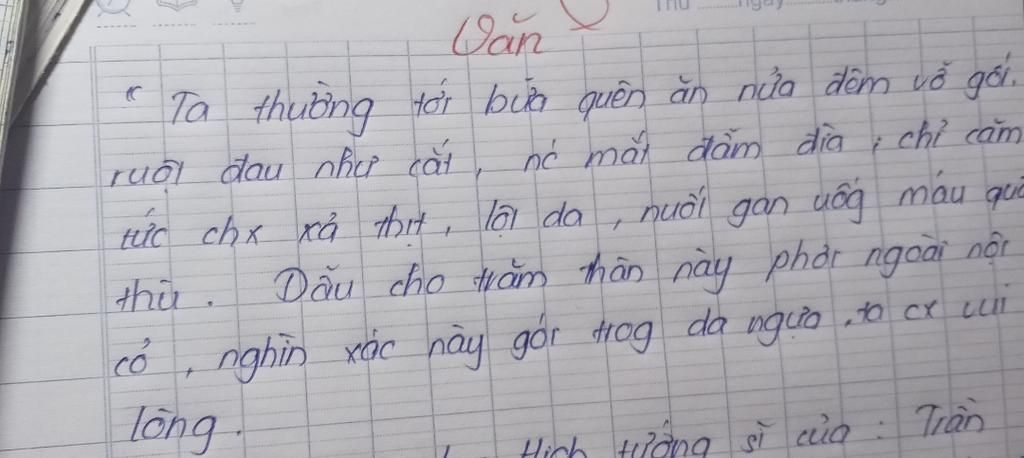 Thứ ngày tháng
Văn
" Ta thường tới bữa quên ăn nửa đêm vỗ gối.
ruột đau như cắt, nc mắt đầm đìa ; chỉ căm
tức chx xả thịt, lột da, nuốt gan uốg máu quâ
thù. Dẫu cho trăm thân này phơi ngoài nội
cỏ, nghìn xác này gói trog da ngựa, ta cx vui
lòng.
Hịch tướng sĩ của : Trần